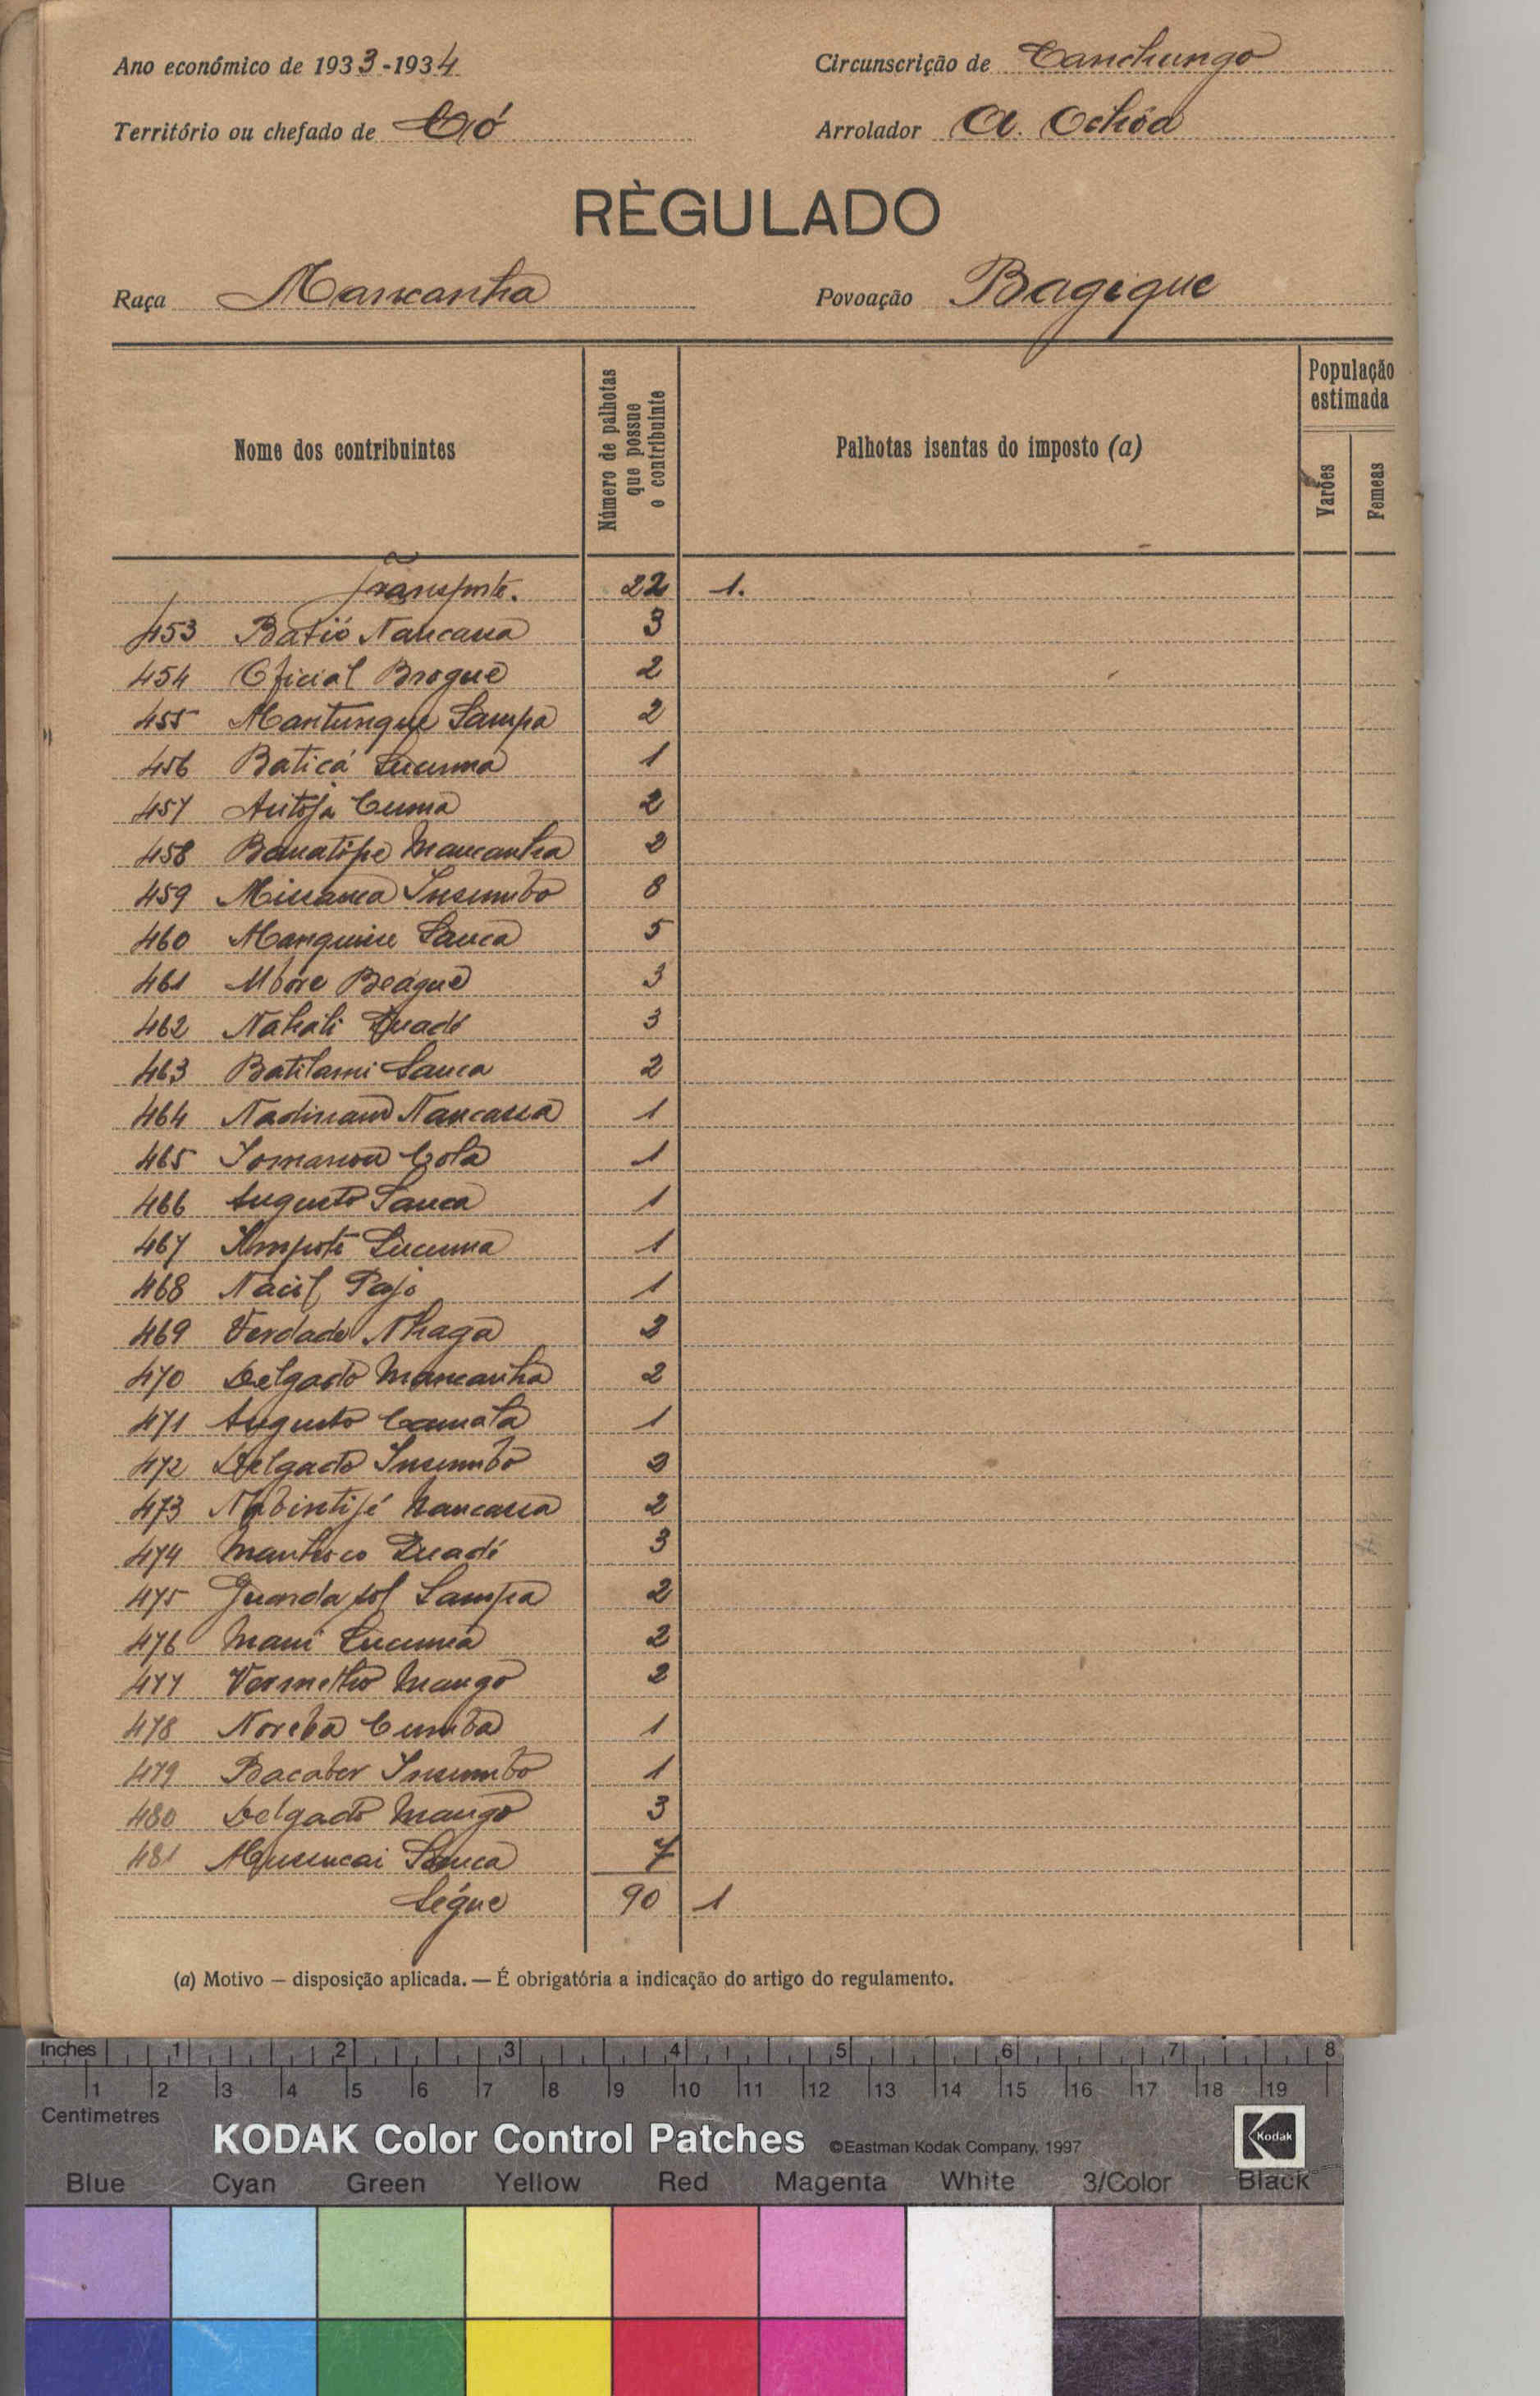 Ano económico de 1933-1934
Circunscrição de Canchungo
Território ou chefado de Có
Arrolador A. Ochôa
RÈGULADO
Raça Mancanha
Povoação Bagigue
Nome dos contribuintes
Número de palhotas que possue o contribuinte
Palhotas isentas do imposto (a)
População estimada
Varões
Femeas
Transporte. 22 1.
453 Batió Nancassa 3
454 Oficial Brogue 2
455 Mantungue Sampa 2
456 Baticá Lucuma 1
457 Cuma 2
458 Mancanha 2
459 Insumbo 8
460 Sanca 5
461 Beágue 3
462 Nahali Quadé 3
463 Batilami Sanca 2
464 Nancassa 1
465 Cola 1
466 Augusto Sanca 1
467 Lucuma 1
468 1
469 Verdade Nhaga 3
470 Delgado Mancanha 2
471 Augusto Camala 1
472 Delgado Insumbo 3
473 Nancassa 2
474 Quadé 3
475 Guarda sol Sampa 2
476 Lucuma 2
477 Vermelho Mango 2
478 Cumba 1
479 Insumbo 1
480 Delgado Mango 3
481 Sanca 7
Ségue 90 1
(a) Motivo — disposição aplicada. — É obrigatória a indicação do artigo do regulamento.
Inches 1 2 3 4 5 6 7 8
1 2 3 4 5 6 7 8 9 10 11 12 13 14 15 16 17 18 19
Centimetres
KODAK Color Control Patches ©Eastman Kodak Company, 1997 Kodak
Blue Cyan Green Yellow Red Magenta White 3/Color Black